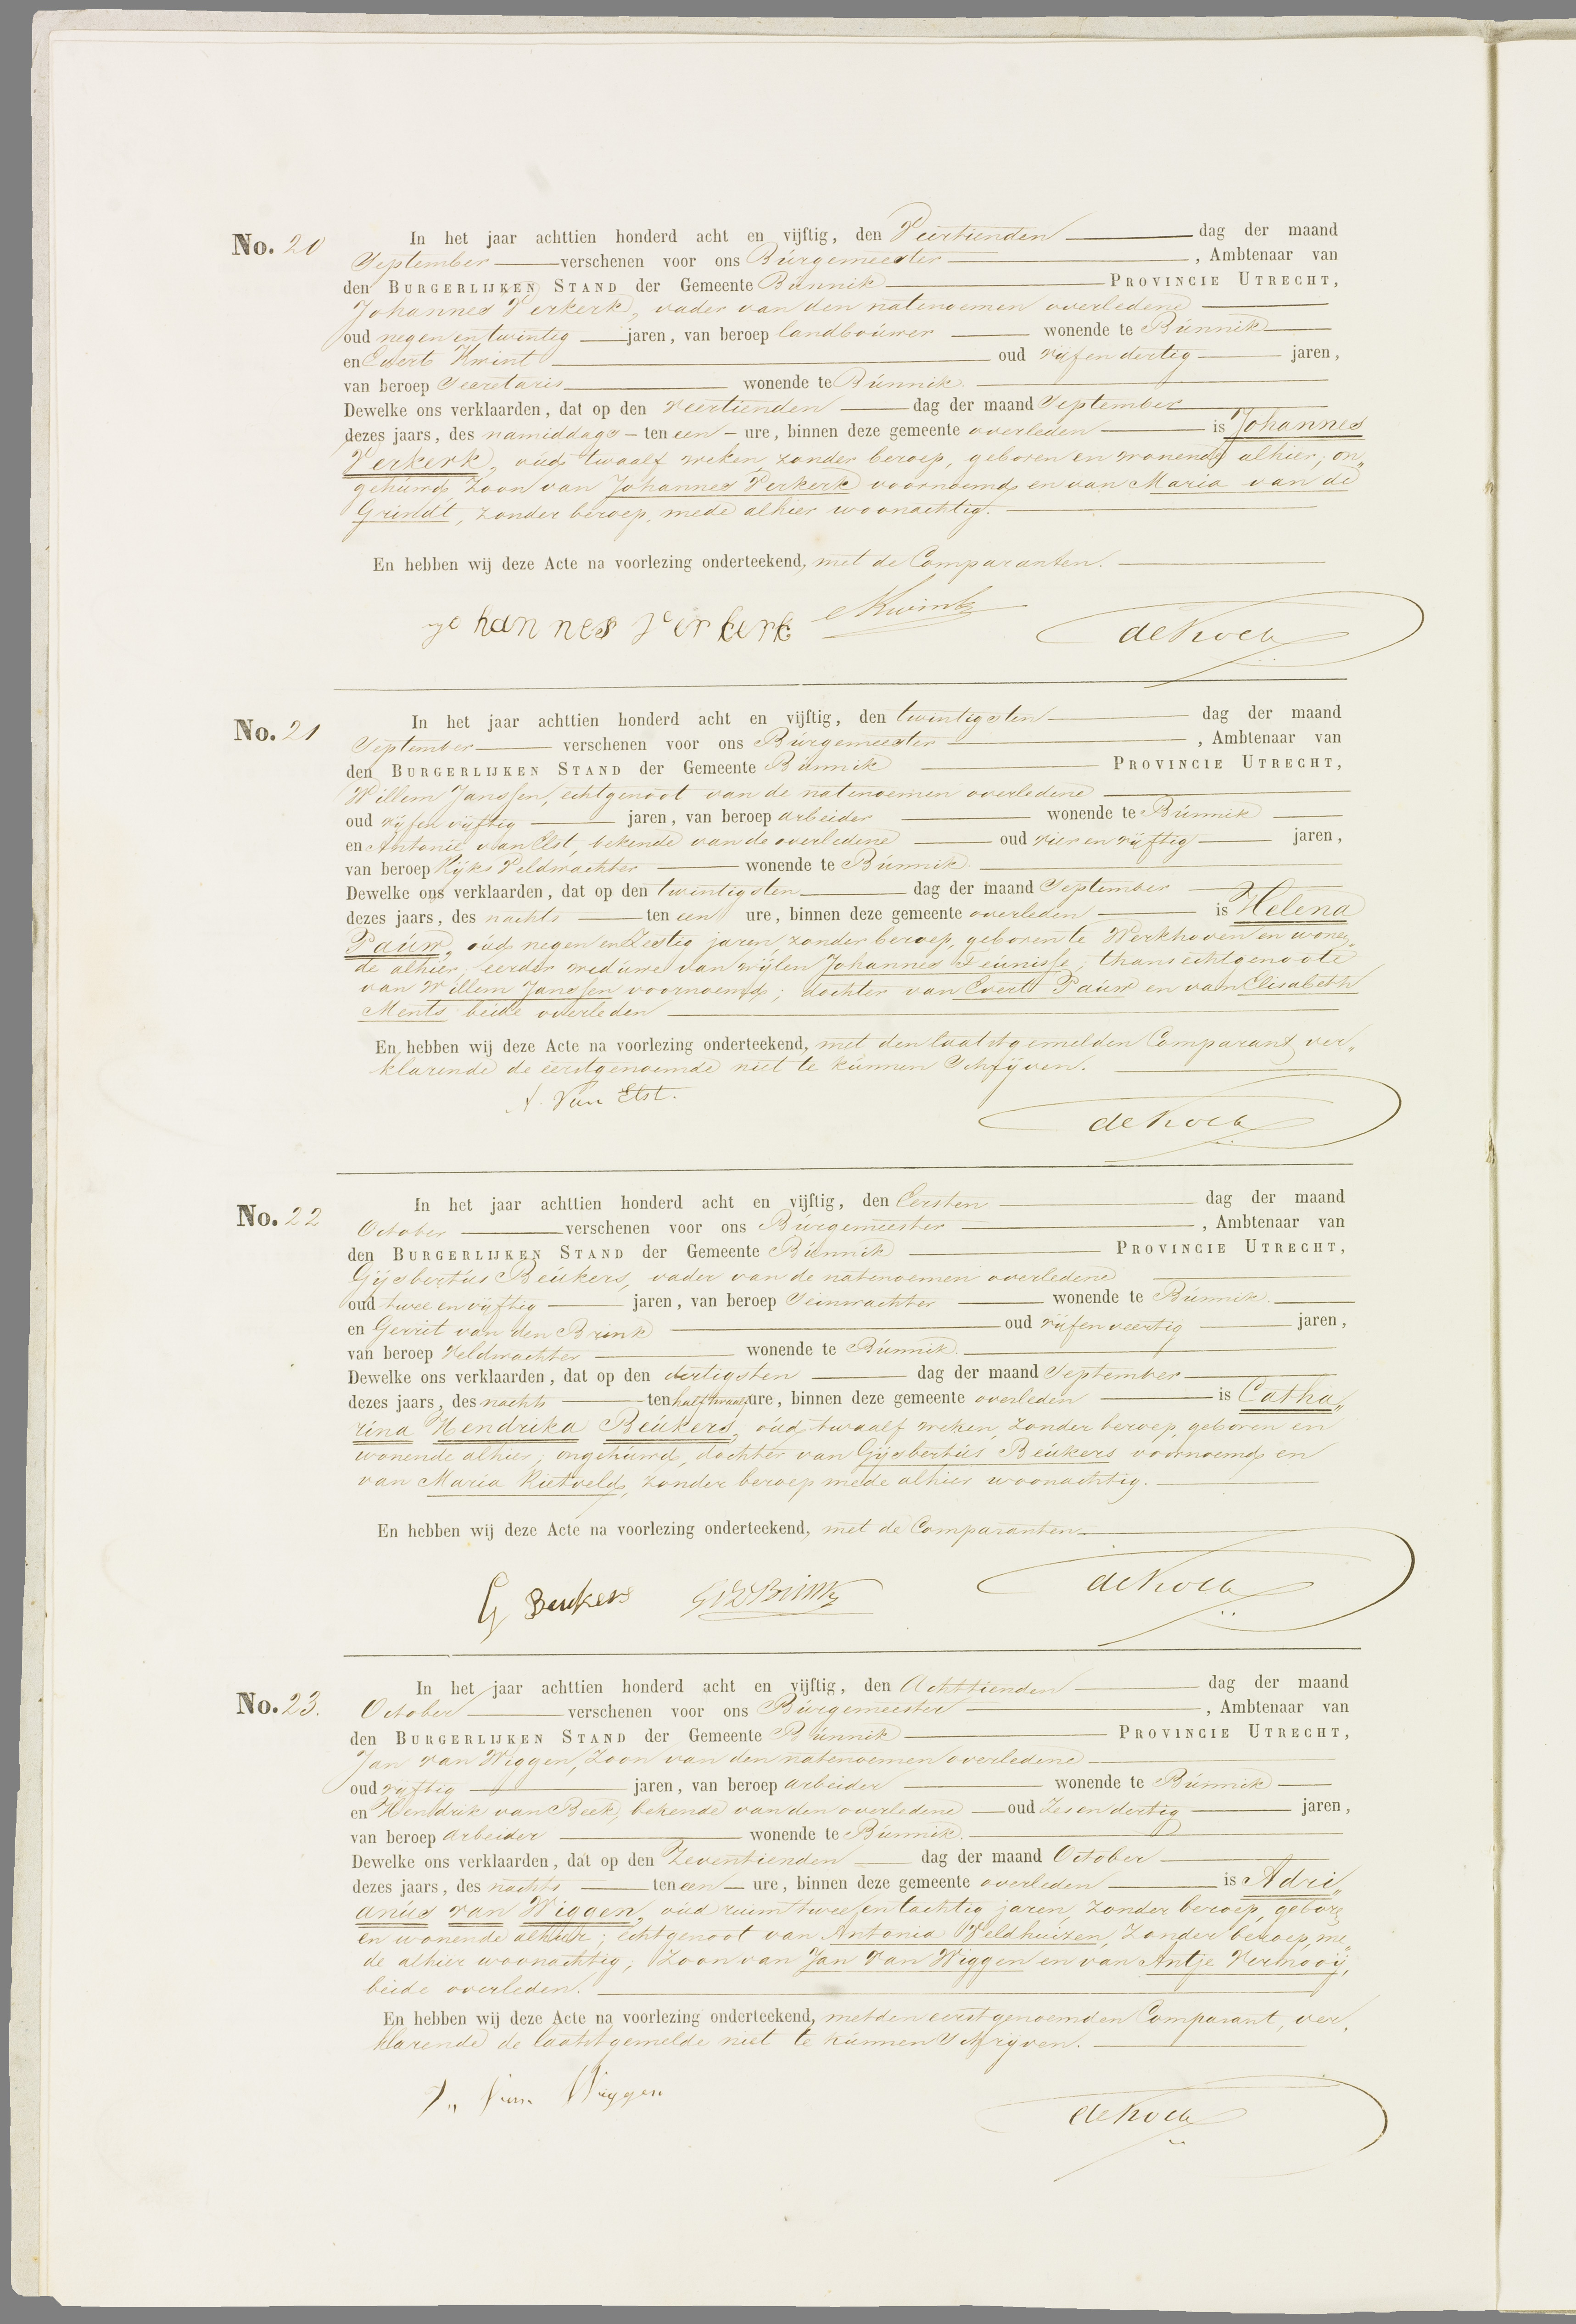 No. 20 In het jaar achttien honderd acht en vijftig, den Veertienden dag der maand
September verschenen voor ons Burgemeester, Ambtenaar van
den BURGERLIJKEN STAND der Gemeente Bunnik PROVINCIE UTRECHT,
Johannes Verkerk, vader van den natenoemen overledene
oud negen en twintig jaren, van beroep landbouwer wonende te Bunnik
en Evert Kwint oud vijf en dertig jaren,
van beroep Secretaris wonende te Bunnik.
Dewelke ons verklaarden, dat op den veertienden dag der maand September
dezes jaars, des namiddags ten een ure, binnen deze gemeente overleden is Johannes
Verkerk, oud twaalf weken, zonder beroep, geboren en wonend alhier; on„
gehuwd, Zoon van Johannes Verkerk voornoemd en van Maria van de
Grindt, zonder beroep, mede alhier woonachtig.
En hebben wij deze Acte na voorlezing onderteekend, met de Comparanten.
Johannes Verkerk EKwint de Kock
No. 21 In het jaar achttien honderd acht en vijftig, den twintigsten dag der maand
September verschenen voor ons Burgemeester, Ambtenaar van
den BURGERLIJKEN STAND der Gemeente Bunnik PROVINCIE UTRECHT,
Willem Janssen, echtgenoot van de natenoemen overledene
oud vijf en vijftig jaren, van beroep arbeider wonende te Bunnik
en Antonie van Elst, bekende van de overledene oud vier en vijftig jaren,
van beroep Rijks Veldwachter wonende te Bunnik.
Dewelke ons verklaarden, dat op den twintigsten dag der maand September
dezes jaars, des nachts ten een ure, binnen deze gemeente overleden is Helena
Pauw, oud negen en Zestig jaren, zonder beroep, geboren te Werkhoven en wonen„
de alhier, eerder weduwe van wijlen Johannes Teunisse, thans echtgenoote
van Willem Janssen voornoemd; dochter van Evert Pauw en van Elisabeth
Ments beide overleden
En hebben wij deze Acte na voorlezing onderteekend, met den laatstgemelden Comparant, ver„
klarende de eerstgenoemde niet te kunnen Schrijven.
A. Van Elst. de Kock
No. 22 In het jaar achttien honderd acht en vijftig, den Eersten dag der maand
October verschenen voor ons Burgemeester, Ambtenaar van
den BURGERLIJKEN STAND der Gemeente Bunnik PROVINCIE UTRECHT,
Gijsbertus Beukers, vader van de natenoemen overledene
oud twee en vijftig jaren, van beroep Seinwachter wonende te Bunnik.
en Gerrit van den Brink oud vijf en veertig jaren,
van beroep Veldwachter wonende te Bunnik.
Dewelke ons verklaarden, dat op den dertigsten dag der maand September
dezes jaars, des nachts ten half twaalf ure, binnen deze gemeente overleden is Catha„
rina Hendrika Beukers, oud twaalf weken, zonder beroep, geboren en
wonende alhier; ongehuwd, dochter van Gijsbertus Beukers voornoemd en
van Maria Rietveld, zonder beroep mede alhier woonachtig.
En hebben wij deze Acte na voorlezing onderteekend, met de Comparanten
G Beukers GVDBrink de Kock
No. 23. In het jaar achttien honderd acht en vijftig, den Achttienden dag der maand
October verschenen voor ons Burgemeester, Ambtenaar van
den BURGERLIJKEN STAND der Gemeente Bunnik PROVINCIE UTRECHT,
Jan van Wiggen, Zoon van den natenoemen overledene
oud vijftig jaren, van beroep arbeider wonende te Bunnik
en Hendrik van Beek, bekende van den overledene oud Zes en dertig jaren,
van beroep arbeider wonende te Bunnik.
Dewelke ons verklaarden, dat op den Zeventienden dag der maand October
dezes jaars, des nachts ten een ure, binnen deze gemeente overleden is Adri„
anus van Wiggen, oud ruim twee en tachtig jaren, zonder beroep, geboren
en wonende alhier; echtgenoot van Antonia Veldhuizen, Zonder beroep, me„
de alhier woonachtig; Zoon van Jan van Wiggen en van Antje Vernooij,
beide overleden.
En hebben wij deze Acte na voorlezing onderteekend, met den eerstgenoemden Comparant, ver„
klarende de laatstgemelde niet te kunnen Schrijven.
J„ van Wiggen de Kock